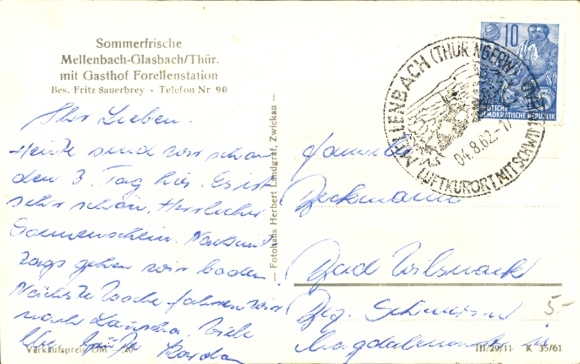 Sommerfrische
Mellenbach-Glasbach/Thür.
mit Gasthof Forellenstation
Bes. Fritz Sauerbrey - Telefon Nr 90
Ihr Lieben.
Heute sind wir schon
den 3. Tag hier. Es ist
sehr schön. Herrlicher
Sonnenschein. Nachmit
tags gehen wir baden
Nächste Woche fahren wir
nach Lauscha. Viele
Grüße
Verkaufspreis DM -,20
— Fotohaus Herbert Landgraf, Zwickau —
10
DEUTSCHE
DEMOKRATISCHE REPUBLIK
MELLENBACH (THÜRINGERW)
04.8.62.-17
LUFTKURORT MIT SCHWIMM
Familie
Beckmann
Bad Wilsnack
Bez. Schwerin
5-
III/29/11 K 35/61